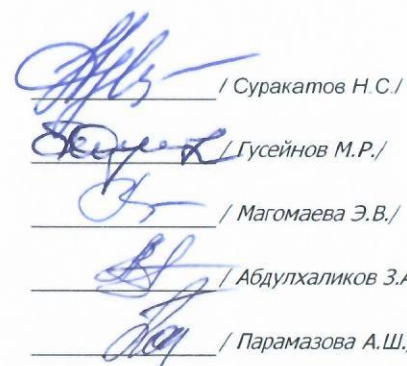 / Суракатов Н.С./
/ Гусейнов М.Р./
/ Магомаева Э.В./
/ Абдулхаликов З.А
/ Парамазова А.Ш./